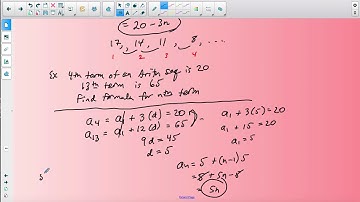 = 20 - 3n
17, 14, 11, 8, ....
1 2 3 4
Ex 4th term of an Arith seq is 20
13th term is 65
Find formula for nth term
a4 = a1 + 3(d) = 20
a13 = a1 + 12(d) = 65
9d = 45
d = 5
a1 + 3(5) = 20
a1 + 15 = 20
a1 = 5
an = 5 + (n-1)5
= 5n